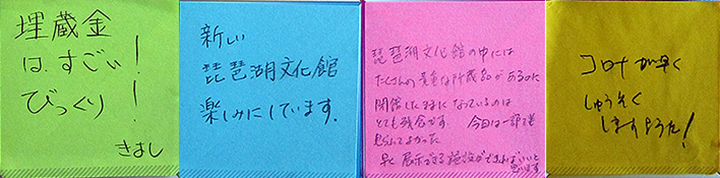 埋蔵金
は、すごい!
びっくり!
きよし
新しい
琵琶湖文化館
楽しみにしています.
琵琶湖文化館の中には
たくさんの貴重な所蔵品があるのに
閉館したままになっているのは
とても残念です. 今日は一部でも
見られてよかった
早く展示できる施設ができればいいと
思います
コロナが早く
しゅうそく
しますように!